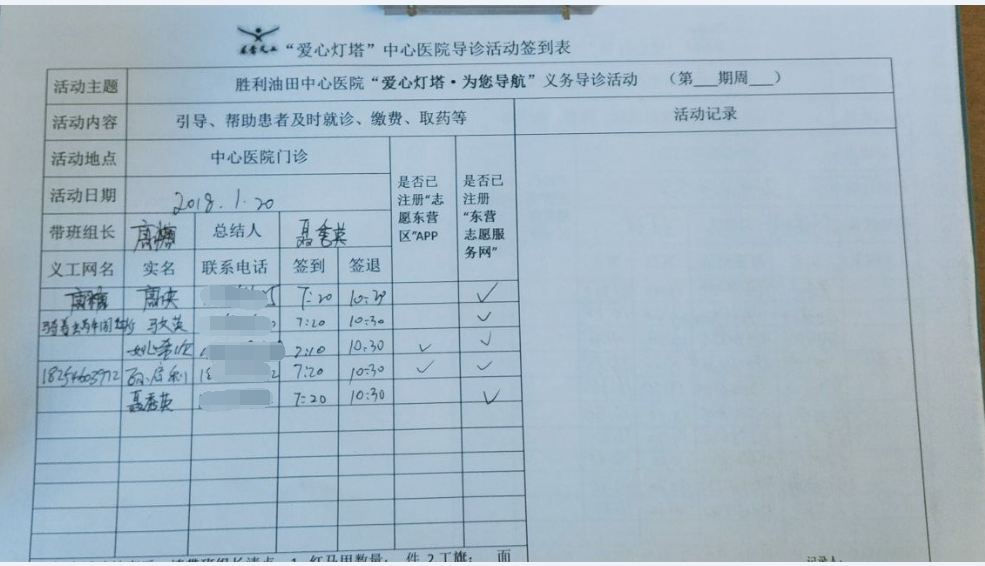 “爱心灯塔”中心医院导诊活动签到表
活动主题 胜利油田中心医院“爱心灯塔·为您导航”义务导诊活动 (第___期周___)
活动内容 引导、帮助患者及时就诊、缴费、取药等 活动记录
活动地点 中心医院门诊
活动日期 2018.1.20
是否已注册“志愿东营区”APP
是否已注册“东营志愿服务网”
带班组长 总结人 聂秀英
义工网名 实名 联系电话 签到 签退
7:20 10:20 ✓
7:20 10:30 ✓
7:10 10:30 ✓ ✓
18254603972 7:20 10:30 ✓ ✓
聂秀英 7:20 10:30 ✓
1.红马甲数量: 件 2.工旗: 面
记录人